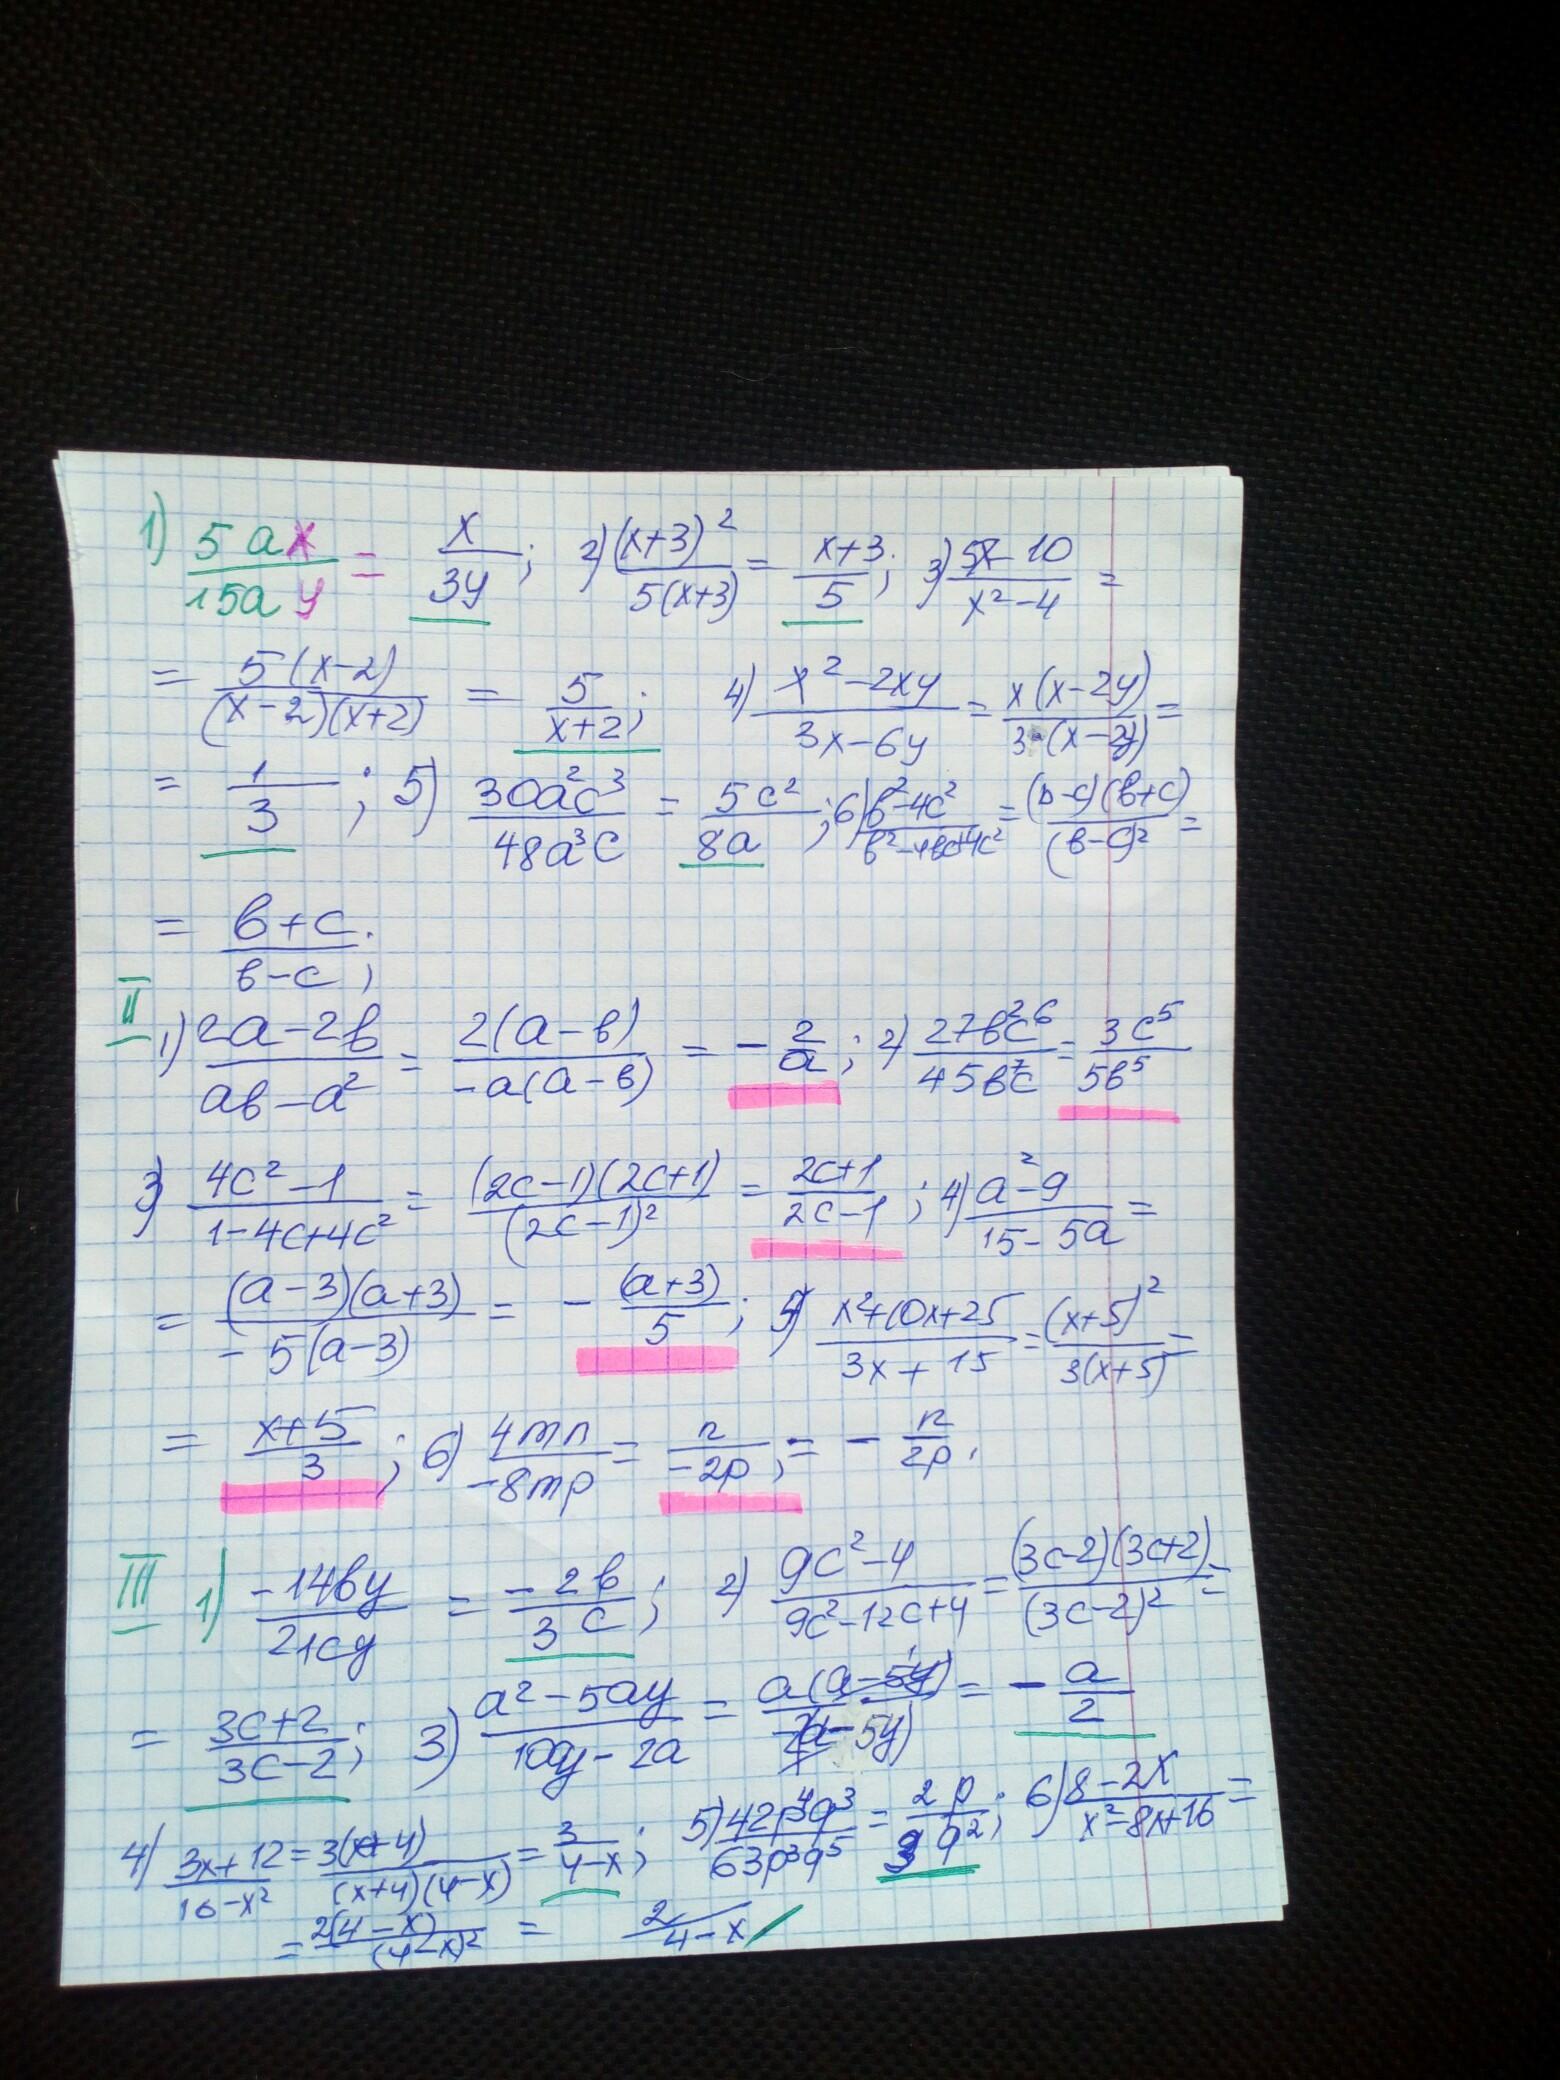 1) 5ax/15ay = x/3y; 2) (x+3)²/5(x+3) = x+3/5; 3) 5x-10/x²-4 =
= 5(x-2)/(x-2)(x+2) = 5/x+2; 4) x²-2xy/3x-6y = x(x-2y)/3(x-2y) =
= 1/3; 5) 30a²c³/48a³c = 5c²/8a; 6) в²-4c²/в²-4вc+4c² = (в-c)(в+c)/(в-c)² =
= в+c/в-c;
II
1) 2a-2в/aв-a² = 2(a-в)/-a(a-в) = - 2/a; 2) 27в²c⁶/45в⁷c = 3c⁵/5в⁵
3) 4c²-1/1-4c+4c² = (2c-1)(2c+1)/(2c-1)² = 2c+1/2c-1; 4) a²-9/15-5a =
= (a-3)(a+3)/-5(a-3) = - (a+3)/5; 5) x²+10x+25/3x+15 = (x+5)²/3(x+5) =
= x+5/3; 6) 4mn/-8mp = n/-2p; = - n/2p.
III 1) -14вy/21cy = -2в/3c; 2) 9c²-4/9c²-12c+4 = (3c-2)(3c+2)/(3c-2)² =
= 3c+2/3c-2; 3) a²-5ay/10y-2a = a(a-5y)/-2(a-5y) = - a/2
4) 3x+12/16-x² = 3(x+4)/(x+4)(4-x) = 3/4-x; 5) 42p⁴q³/63p³q⁵ = 2p/3q²; 6) 8-2x/x²-8x+16 =
= 2(4-x)/(4-x)² = 2/4-x